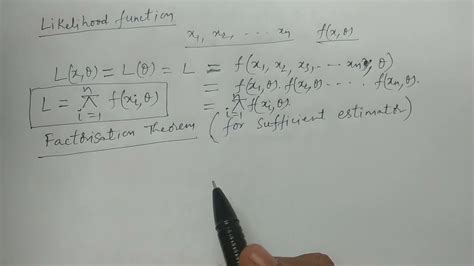 Likelihood function
x₁, x₂, ..... xₙ f(x,θ)
L(x,θ) = L(θ) = L = f(x₁, x₂, x₃, .... xₙ, θ)
= f(x₁,θ). f(x₂,θ) ..... f(xₙ,θ).
L = π f(xᵢ,θ) i=1 n
= π f(xᵢ,θ). i=1 n
Factorisation Theorem (for sufficient estimator)